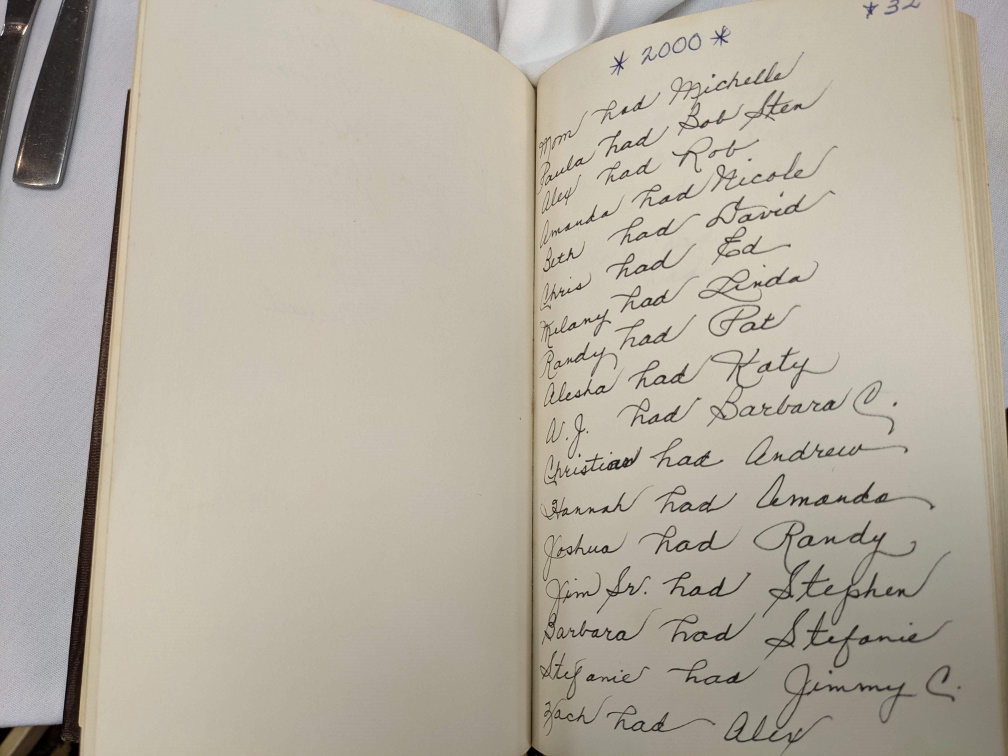 * 32
* 2000 *
Mom had Michelle
Paula had Bob Sten
Alex had Rob
Amanda had Nicole
Beth had David
Chris had Ed
Melany had Linda
Randy had Pat
Alesha had Katy
A.J. had Barbara C.
Christian had Andrew
Hannah had Amanda
Joshua had Randy
Jim Sr. had Stephen
Barbara had Stefanie
Stefanie had Jimmy C.
Zach had Alex